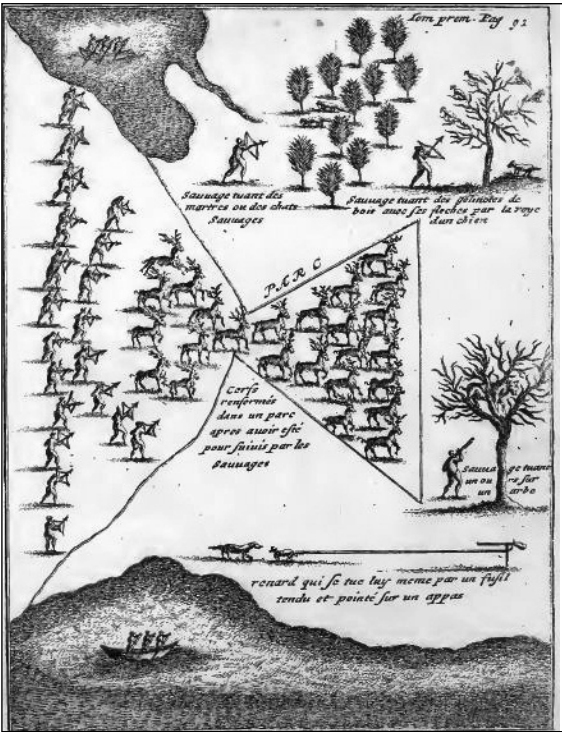 Tom prem. Pag 92
Sauvage tuant des
martres ou des chats
Sauvages
Sauvage tuant des gelinotes de
bois avec ses fleches par la voye
d'un chien
PARC
Cerfs
renfermés
dans un parc
apres avoir esté
poursuivis par les
Sauvages
Sauva ge tuant
un ou rs sur
un arbe
renard qui se tue luy meme par un fusil
tendu et pointé sur un appas